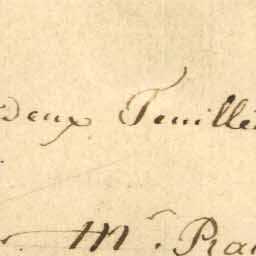 deux Feuille
Mr. Ra